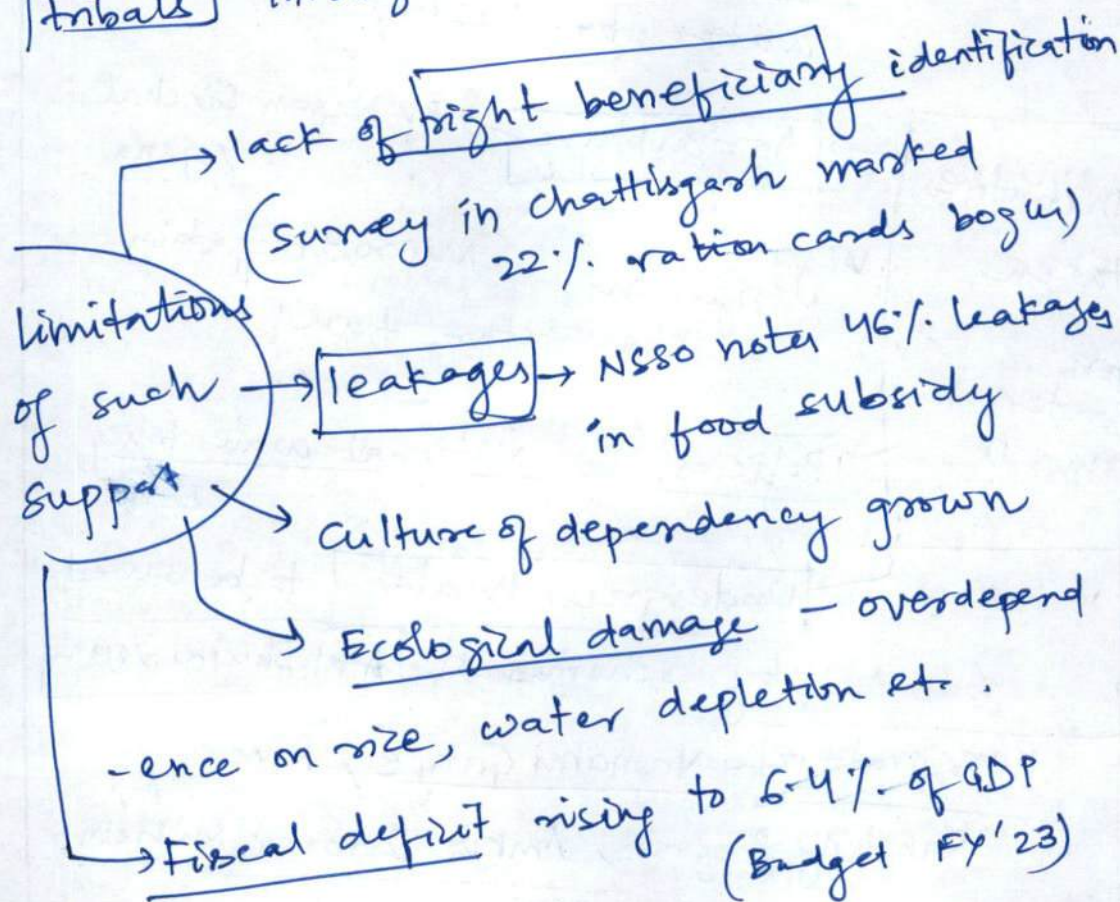 tribals
→ lack of right beneficiary identification
(survey in Chattisgarh marked
22%. ration cards bogus)
limitations
of such
support
→ leakages → NSSO notes 46%. leakages
in food subsidy
→ culture of dependency grown
→ Ecological damage – overdepend
-ence on rice, water depletion etc.
→ Fiscal deficit rising to 6.4%. of GDP
(Budget FY'23)